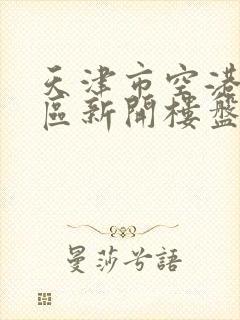 天津市空港
區新開樓盤
曼莎兮語